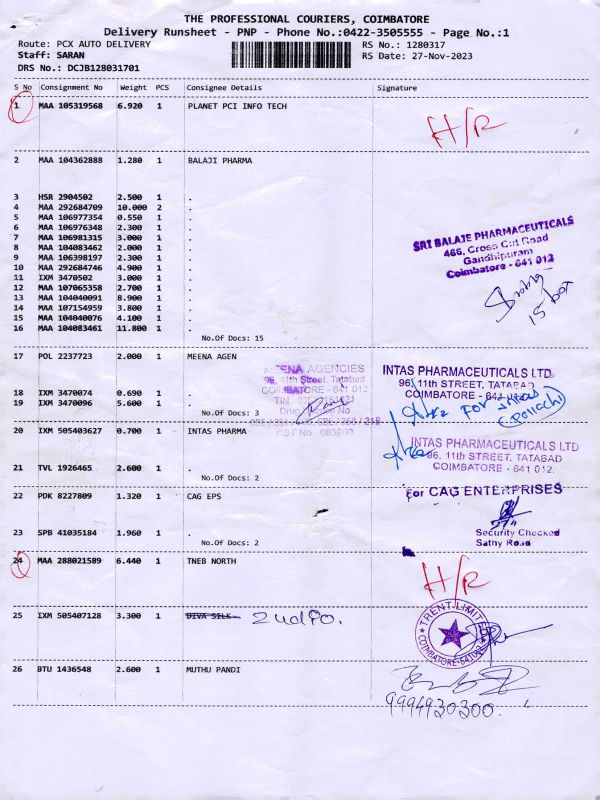 THE PROFESSIONAL COURIERS, COIMBATORE
Delivery Runsheet - PNP - Phone No.:0422-3505555 - Page No.:1
Route: PCX AUTO DELIVERY RS No.: 1280317
Staff: SARAN RS Date: 27-Nov-2023
DRS No.: DCJB128031701
S No Consignment No Weight PCS Consignee Details Signature
1 MAA 105319568 6.920 1 PLANET PCI INFO TECH
H/R
2 MAA 104362888 1.280 1 BALAJI PHARMA
3 HSR 2904502 2.500 1 .
4 MAA 292684709 10.000 2 .
5 MAA 106977354 0.550 1 .
6 MAA 106976348 2.300 1 .
7 MAA 106981315 3.000 1 .
8 MAA 104083462 2.000 1 .
9 MAA 106398197 2.300 1 .
10 MAA 292684746 4.900 1 .
11 IXM 3470502 3.000 1 .
12 MAA 107065358 2.700 1 .
13 MAA 104040091 8.900 1 .
14 MAA 107154959 3.800 1 .
15 MAA 104040076 4.100 1 .
16 MAA 104083461 11.800 1 .
No.Of Docs: 15
SRI BALAJE PHARMACEUTICALS
466, Cross Cut Road
Gandhipuram
Coimbatore - 641 012
15 box
17 POL 2237723 2.000 1 MEENA AGEN
18 IXM 3470074 0.690 1 .
19 IXM 3470096 5.600 1 .
No.Of Docs: 3
MEENA AGENCIES
96, 11th Street, Tatabad
COIMBATORE - 641 012
INTAS PHARMACEUTICALS LTD.
96, 11th STREET, TATABAD
COIMBATORE - 641 012
For Intas
(Pollachi)
20 IXM 505403627 0.700 1 INTAS PHARMA
21 TVL 1926465 2.600 1 .
No.Of Docs: 2
INTAS PHARMACEUTICALS LTD
96, 11th STREET, TATABAD
COIMBATORE - 641 012.
22 PDK 8227809 1.320 1 CAG EPS
23 SPB 41035184 1.960 1 .
No.Of Docs: 2
For CAG ENTERPRISES
Security Checked
Sathy Road
24 MAA 288021589 6.440 1 TNEB NORTH
H/R
25 IXM 505407128 3.300 1 DIVA SILK
TRENT LIMITED
26 BTU 1436548 2.600 1 MUTHU PANDI
9994930300.